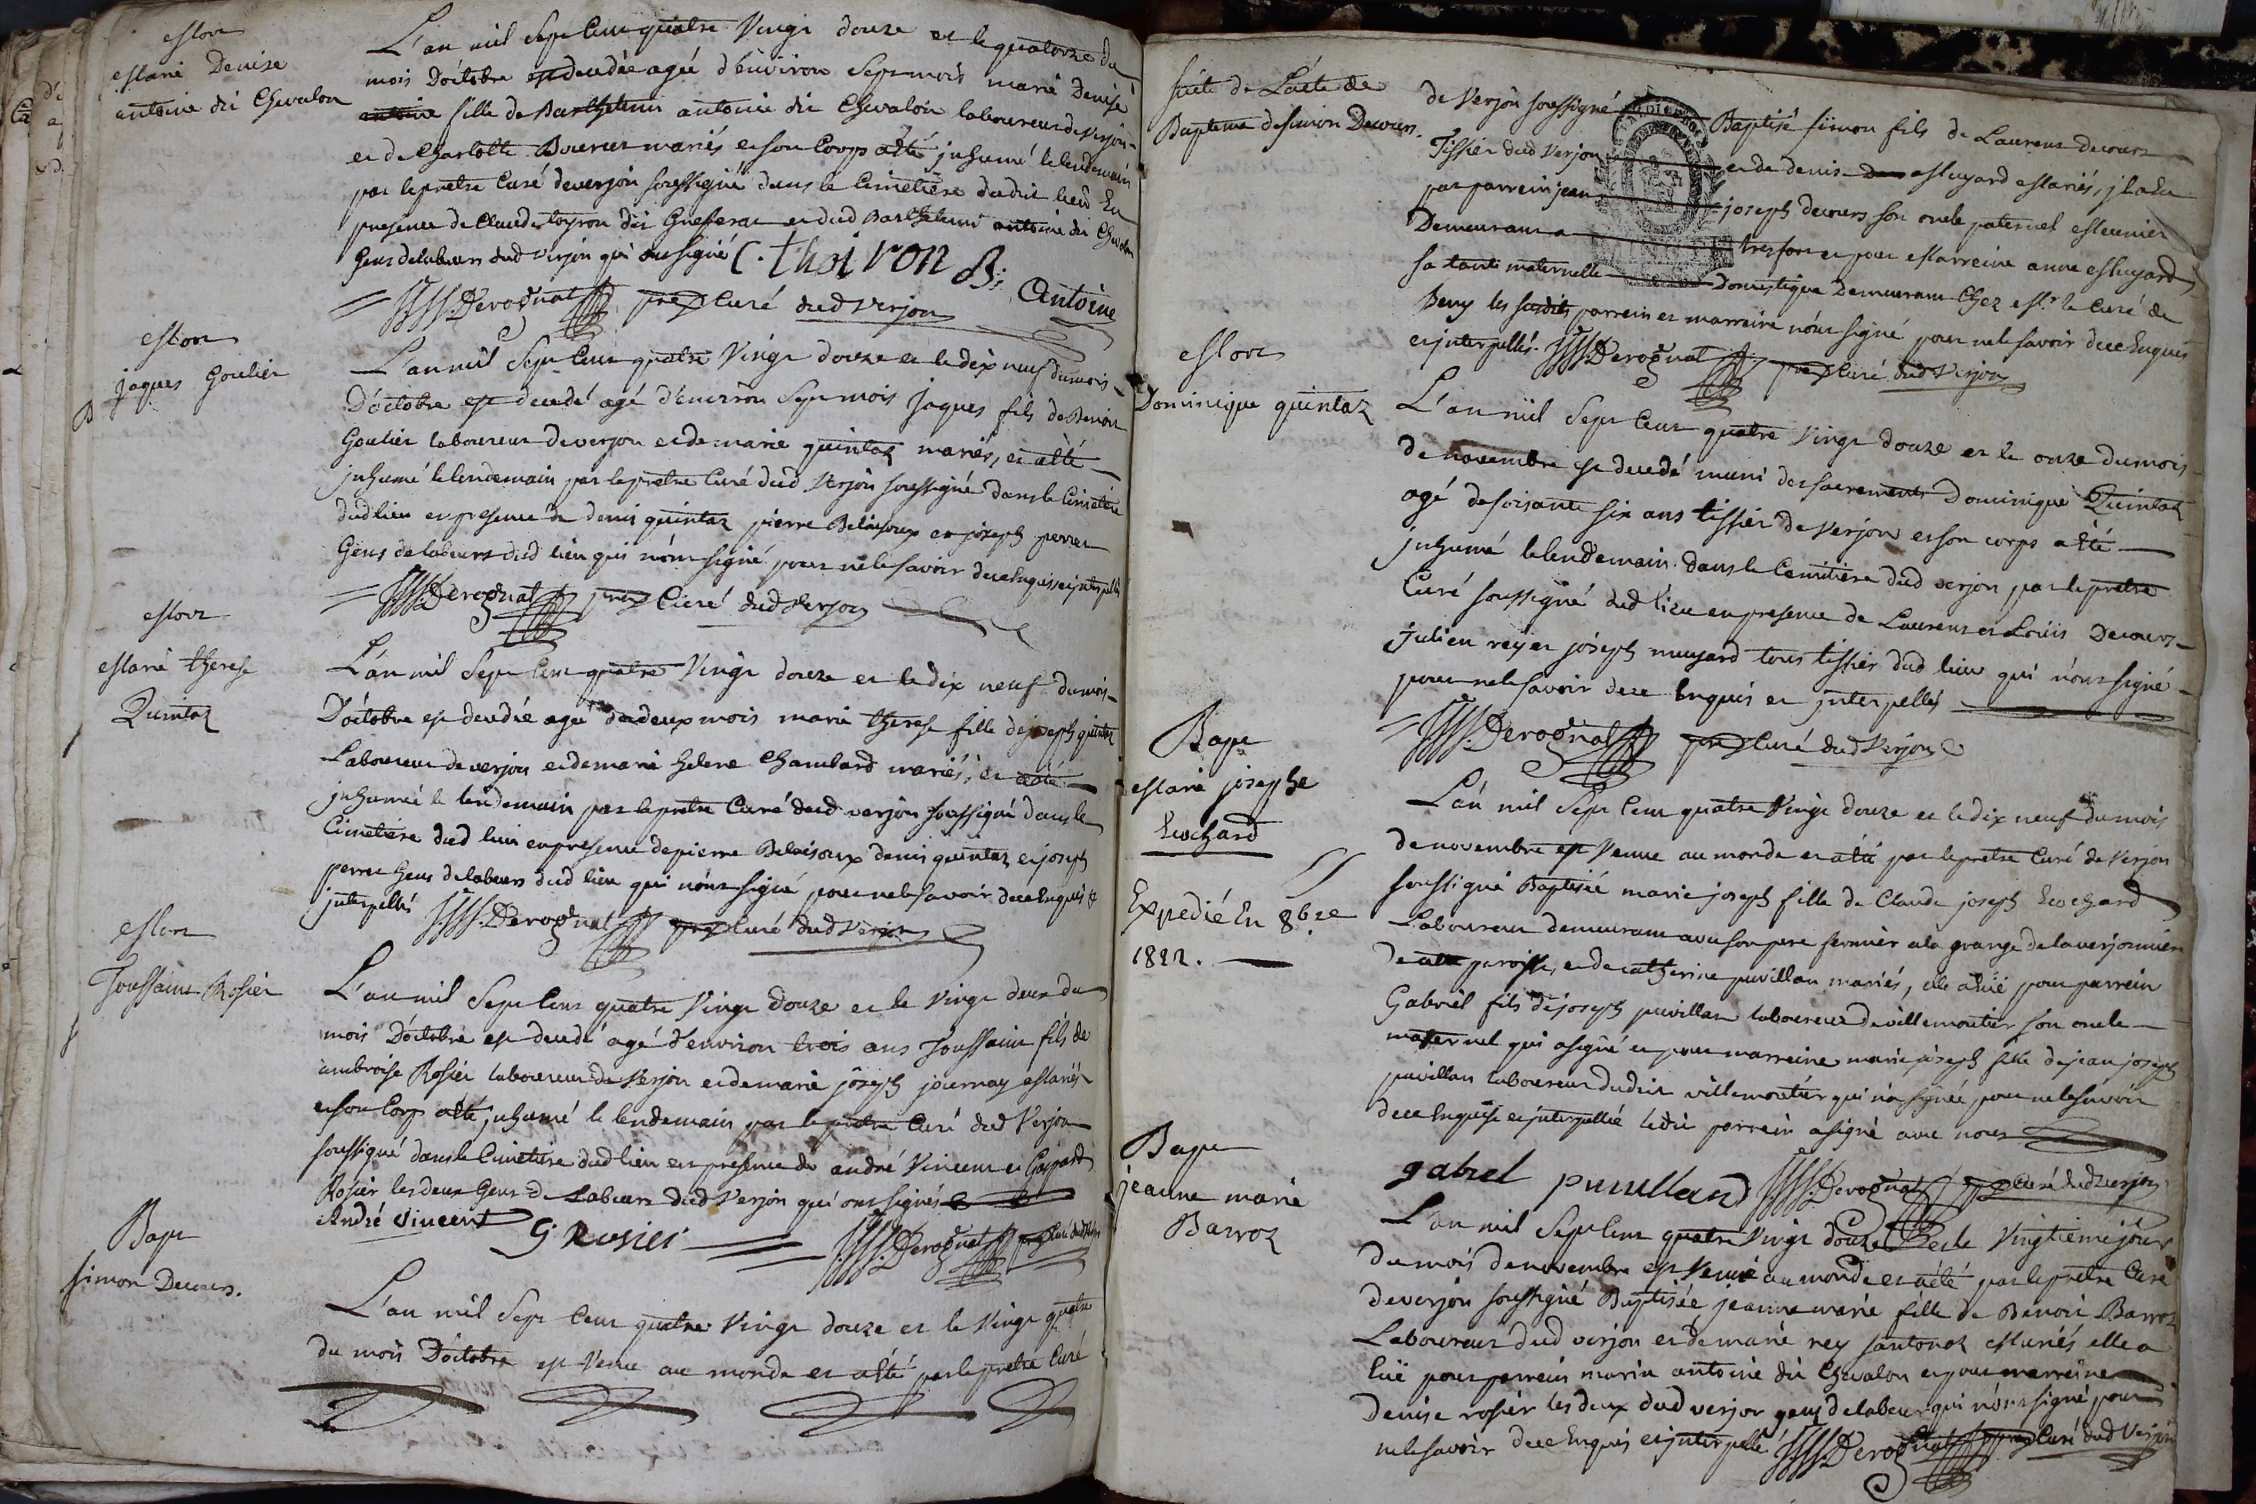 Mort
Marie Denise
antoine dit Chevalon
L'an mil Sept Cent quatre Vingt douze et le quatorze du
mois D'octobre est decedée agée d'environ Sept mois marie Denise
antoine fille de Barthelemi antoine dit Chevalon laboureur de verjon
et de Charlotte Bouvier mariés et son Corps a été inhumé le lendemain
par le prêtre Curé de verjon soussigné dans le Cimetière dudit lieu En
presence de Claude toyron dit et dud Barthelemi antoine dit Chevalon
Gens de labeurs dud verjon qui ont signé C. thoiron B. Antoine
Derognat pretre Curé dud verjon
Mort
jaques Goulier
L'an mil Sept Cent quatre Vingt douze et le dix neuf du mois
D'octobre est decedé agé d'environ Sept mois jaques fils de Benoit
Goulier laboureur de verjon et de marie quintaz mariés, et a été
inhumé le lendemain par le pretre Curé dud Verjon soussigné dans le Cimetière
dud lieu en presence de denis quintaz pierre Belaisoux et joseph perret
Gens de labeurs dud lieu qui n'ont signé pour ne le savoir de ce Enquis et interpellés
Derognat pretre Curé dud Verjon
Mort
Marie therese
Quintaz
L'an mil Sept Cent quatre Vingt douze et le dix neuf du mois
D'octobre est decedée agée de deux mois marie therese fille de joseph quintaz
Laboureur de verjon et de marie helene Chambard mariés, et a été
inhumée le lendemain par le pretre Curé dud verjon soussigné dans le
Cimetière dud lieu en presence de pierre Belaisoux denis quintaz et joseph
perret Gens de labeurs dud lieu qui n'ont signé pour ne le savoir de ce Enquis et
interpellés Derognat pretre Curé dud Verjon
Mort
Toussaint Rosier
L'an mil Sept Cent quatre Vingt douze et le Vingt deux du
mois D'octobre est decedé agé d'environ trois ans Toussaint fils de
ambroise Rosier laboureur de Verjon et de marie joseph journay Mariés
et son Corps a été inhumé le lendemain par le pretre Curé dud Verjon
soussigné dans le Cimetière dud lieu en presence de andré Vincent et Gaspard
Rosier les deux Gens de Labeurs dud Verjon qui ont signés
André Vincent G Rosier Derognat pretre Curé dud Verjon
Bapt
simon Decours.
L'an mil Sept Cent quatre Vingt douze et le Vingt quatre
du mois D'octobre est Venu au monde et a été par le pretre Curé
suite de L'acte de
Bapteme de simon Decours.
de Verjon soussigné Baptisé simon fils de Laurent decours
Tissier dud Verjon et de denise Muyard Mariés, il a eu
par parrein jean joseph decours son oncle paternel Meunier
Demeurant a tresfort et pour Marreine anne Muyard
sa tante maternelle Domestique Demeurant Chez Mr. le Curé de
Beny les susdits parrein et marreine n'ont signé pour ne le savoir de ce Enquis
et interpellés. Derognat pretre Curé dud Verjon
Mort
Dominique quintaz
L'an mil Sept Cent quatre Vingt douze et le onze du mois
de novembre est decedé muni des sacrements Dominique Quintaz
agé de soixante six ans tissier de Verjon et son corps a été
inhumé le lendemain dans le Cimitière dud verjon par le pretre
Curé soussigné dud lieu en presence de Laurent et Loüis Decours
julien rey et joseph muyard tous tissier dud lieu qui n'ont signé
pour ne le savoir de ce Enquis et interpellés
Derognat pretre Curé dud Verjon
Bapt
Marie josephe
Ecochard
Expedié En 8bre
1822.
L'an mil Sept Cent quatre Vingt douze et le dix neuf du mois
de novembre est Venue au monde et a été par le pretre Curé de Verjon
soussigné Baptisée marie joseph fille de Claude joseph Ecochard
Laboureur demeurant avec son pere fermier a la grange de la verjonniere
de cette paroisse, et de catherine puvillan mariés, elle a eüe pour parrein
Gabriel fils de joseph puvillan laboureur de villemoutier son oncle
maternel qui a signé et pour marreine marie joseph fille de jean joseph
puvillan laboureur dudit villemoutier qui n'a signée pour ne le savoir
de ce Enquise et interpellée ledit parrein a signé avec nous
gabriel puvilland Derognat pretre Curé dud verjon
Bapt
jeanne marie
Barroz
L'an mil Sept Cent quatre Vingt douze et le Vingtieme jour
du mois de novembre est Venue au monde et a été par le pretre Curé
de verjon soussigné Baptisée jeanne marie fille de Benoit Barroz
Laboureur dud verjon et de marie rey santonoz Mariés elle a
Eüe pour parrein marin antoine dit Chevalon et pour marreine
denise rosier les deux dud verjon gens de labeur qui n'ont signé pour
ne le savoir de ce Enquis et interpellé Derognat pretre Curé dud Verjon